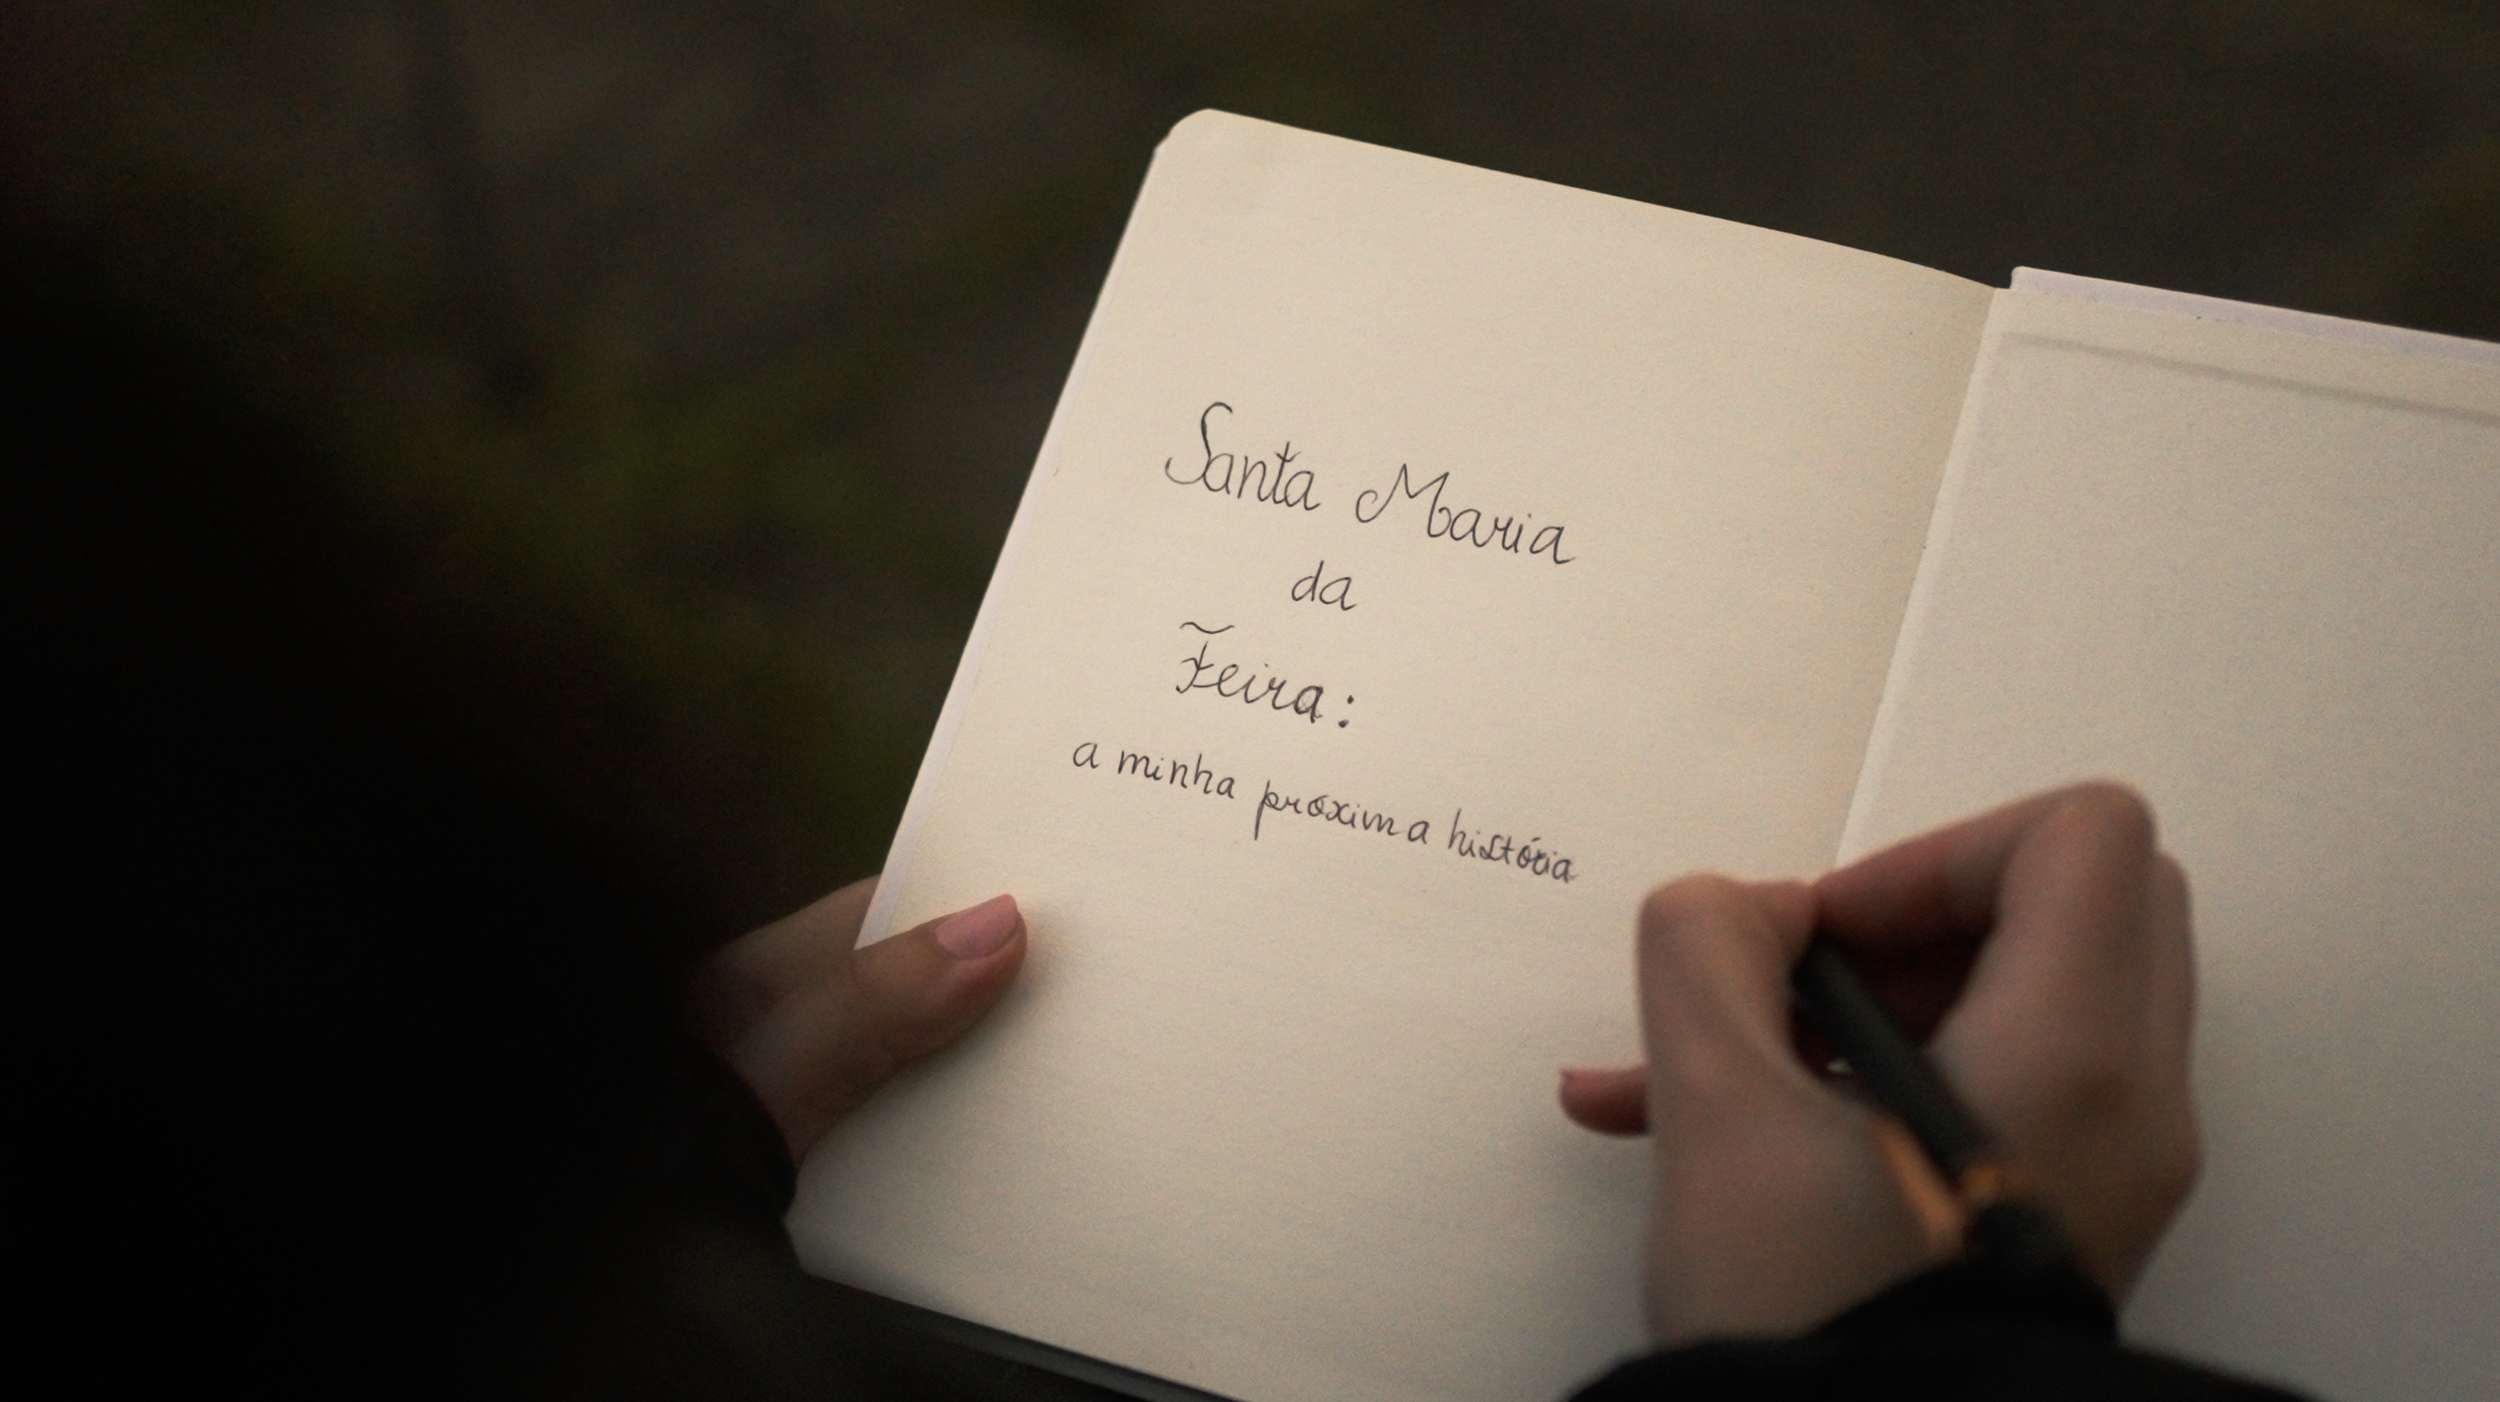 Santa Maria
da
Feira:
a minha próxima história